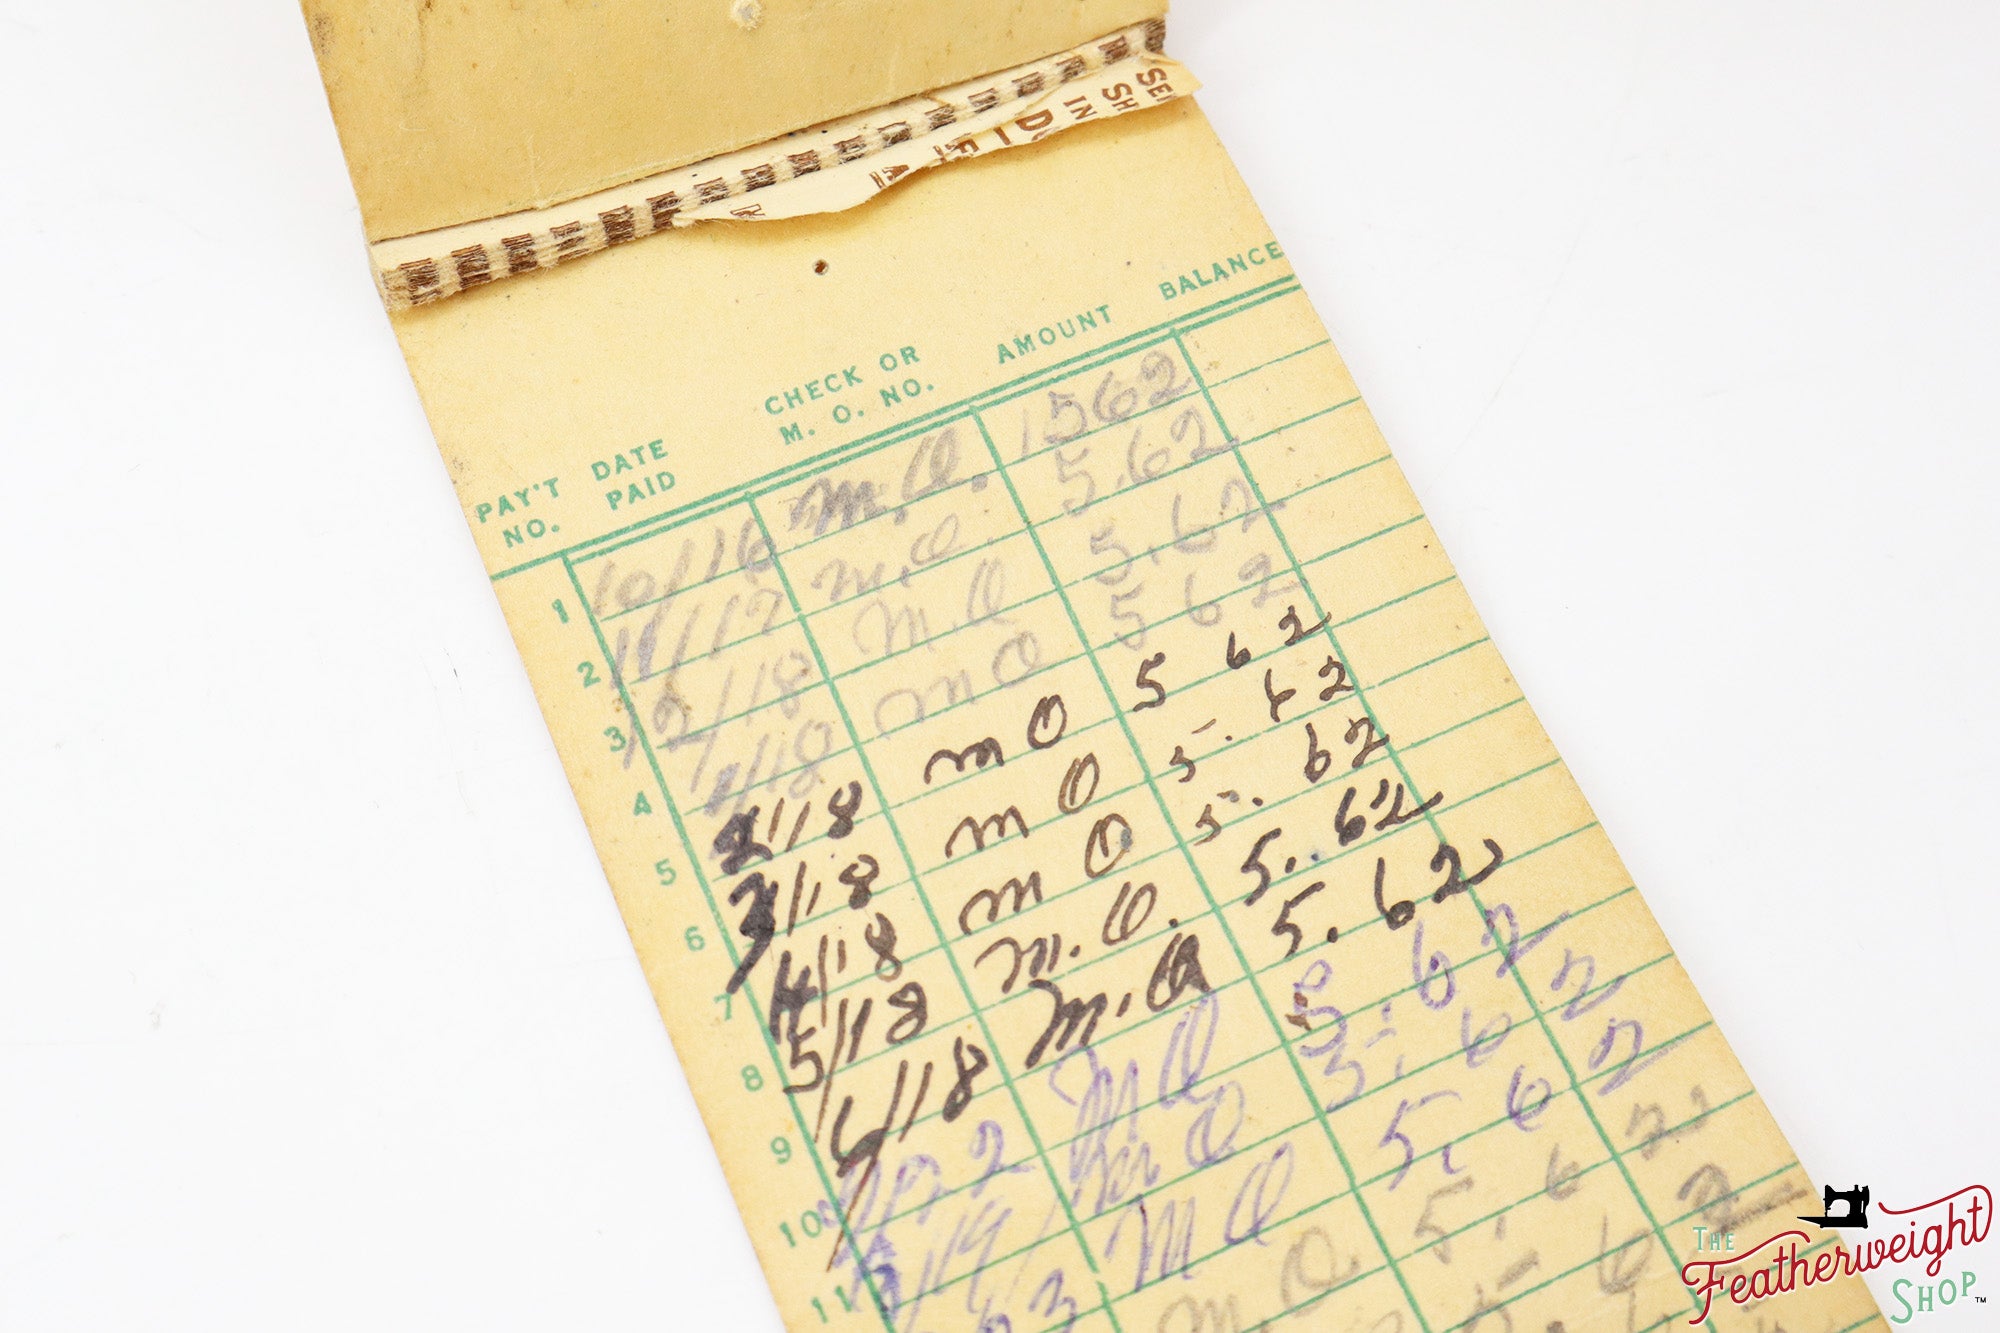 SE
SH
IN
DO
PAY'T NO. DATE PAID CHECK OR M. O. NO. AMOUNT BALANCE
1 10/16 M.O. 1562
2 11/17 m.O. 5.62
3 12/18 M.O 5.62
4 1/18 m O 5 62
5 2/18 m O 5 62
6 3/18 m O 5. 62
7 4/18 m O 5. 62
8 5/18 m.O. 5..62
9 6/18 M.O 5.62
10 7/22 M O 5.62
11 M O 5. 62
M O 5. 62
M O 5. 62
THE Featherweight SHOP™